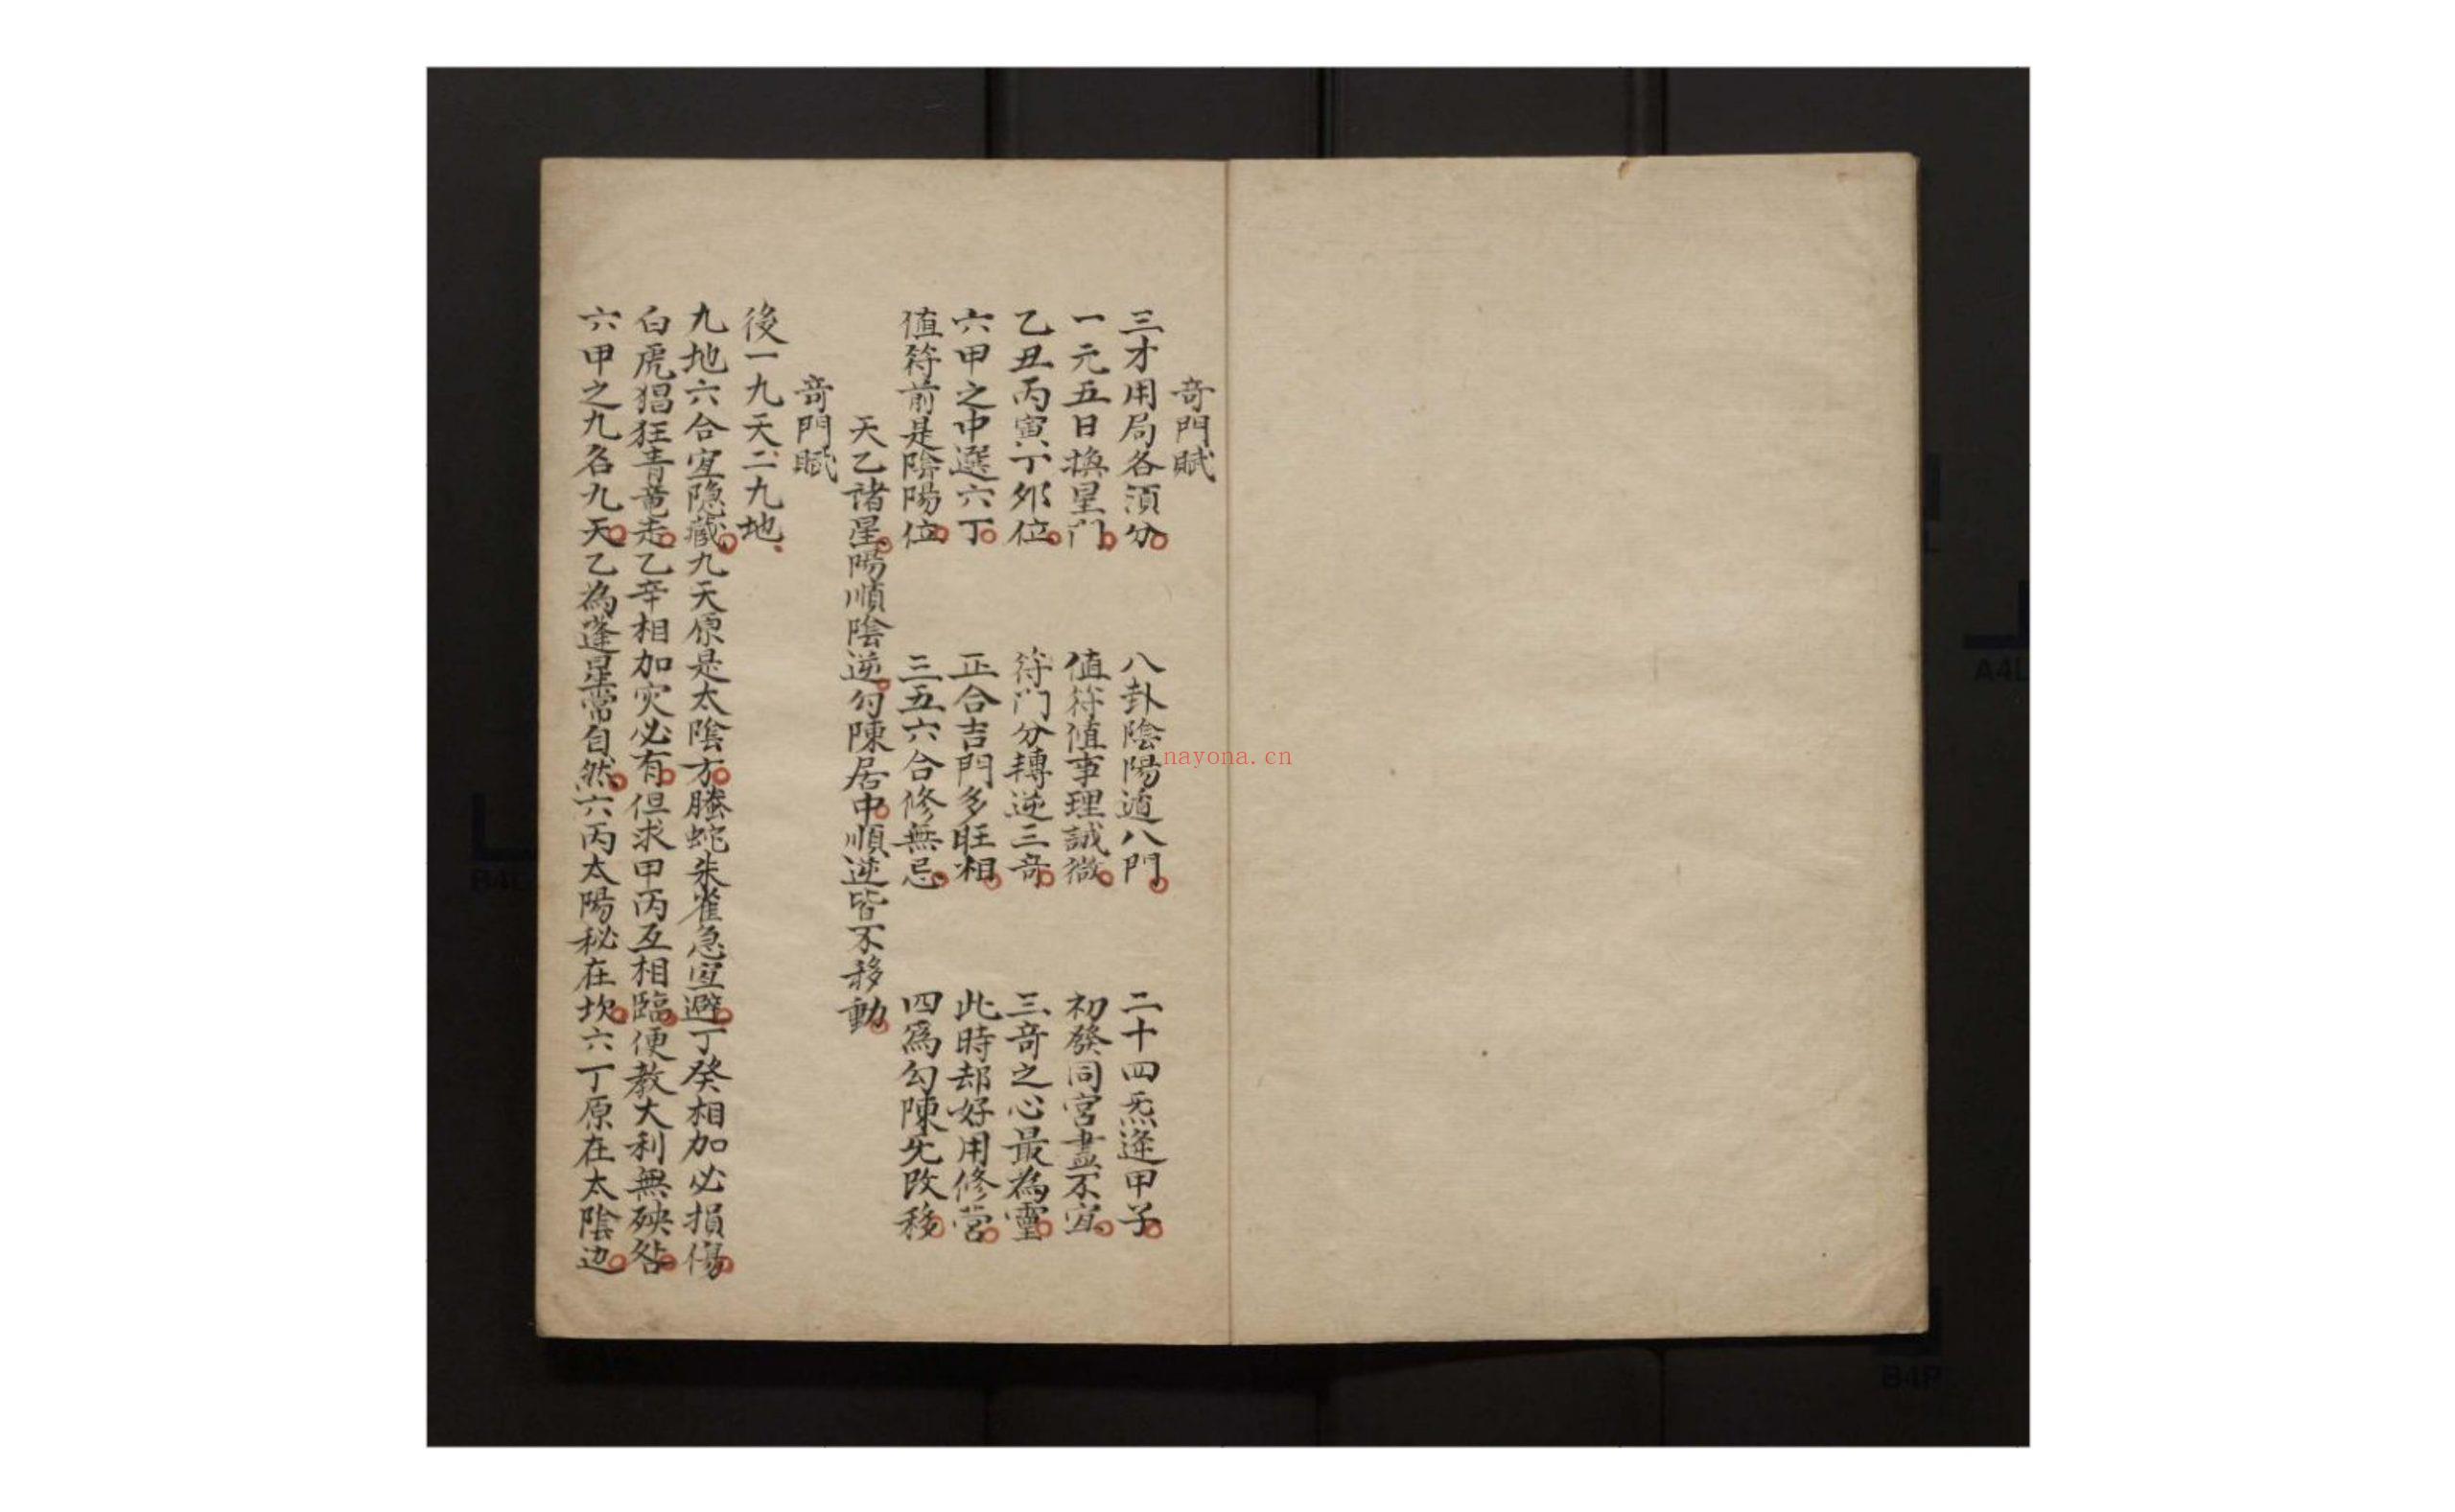 竒門賦
三才用局各須分 八卦陰陽遁八門 二十四炁逢甲子
一元五日換星门 值符值事理誠微 初發同宮盡不宜
乙丑丙寅丁夘位 符门分轉逆三竒 三竒之心最為靈
六甲之中選六丁 正合吉門多旺相 此時却好用修营
值符前是陰陽位 三五六合修無忌 四爲勾陳先改移
天乙諸星陽順陰逆勾陳居中順逆皆不移動
竒門賦
後一九天二九地
九地六合宜隐藏九天原是太陰方螣蛇朱雀急宜避丁癸相加必損傷
白虎猖狂青竜走乙辛相加灾必有但求甲丙互相臨便教大利無殃咎
六甲之九名九天乙為逢星常自然六丙太陽秘在坎六丁原在太陰边
nayona.cn